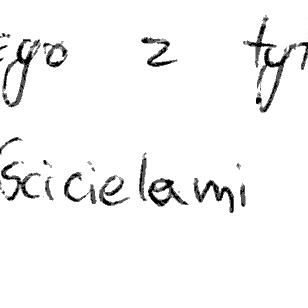 ego z tym
ścicielami